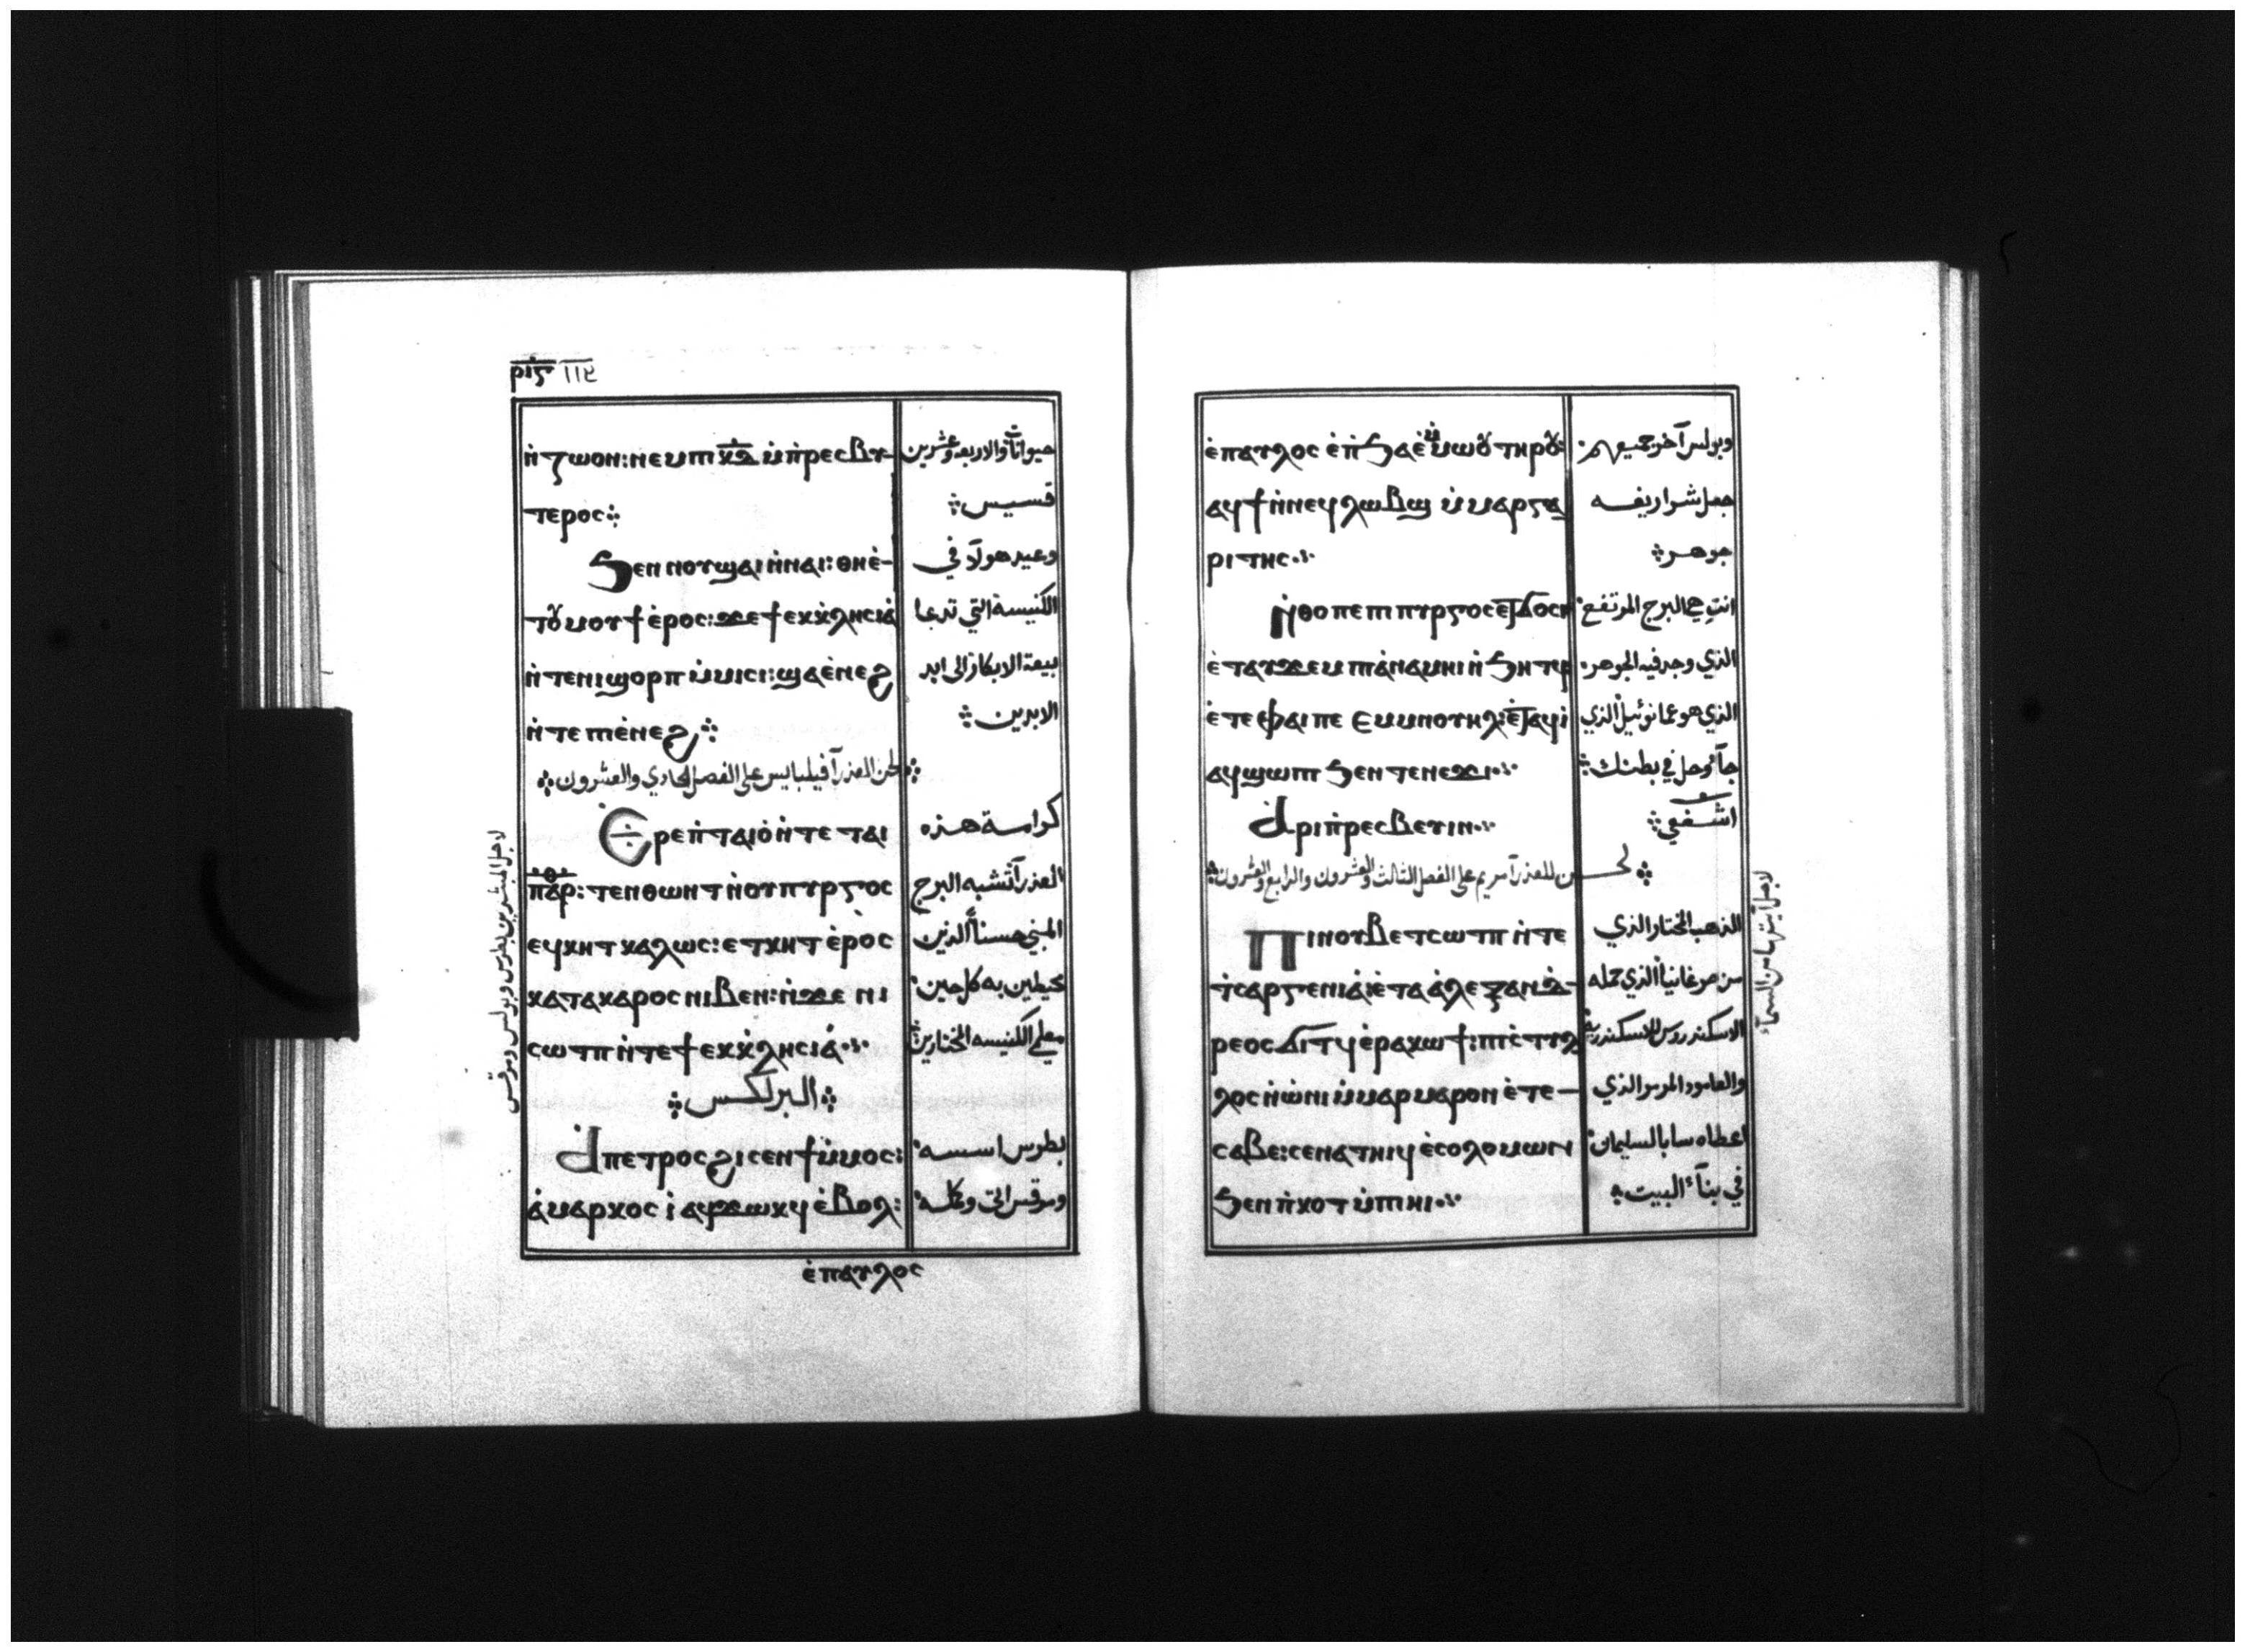 ⲣⲓⲋ
ⲛ̀ⲍⲱⲟⲛ: ⲛⲉⲙ ⲡⲓⲕ̅ⲇ̅ ⲙ̀ⲡ̀ⲣⲉⲥⲃⲩ- حيواناً والاربعه وعشرين
ⲧⲉⲣⲟⲥ⁘ قسيس⁘
Ϧⲉⲛ ⲡⲟⲩϣⲁⲓ ⲛ̀ⲛⲁⲓ: ⲑⲏⲉ̀- وعيد هولآء في
ⲧⲟⲩⲙⲟⲩϯ ⲉ̀ⲣⲟⲥ: ϫⲉ ϯⲉⲕⲕ̀ⲗⲏⲥⲓⲁ̀ الكنيسة التي تدعا
ⲛ̀ⲧⲉ ⲛⲓϣⲟⲣⲡ ⲙ̀ⲙⲓⲥⲓ: ϣⲁ ⲉ̀ⲛⲉϩ بيعة الابكار الى ابد
ⲛ̀ⲧⲉ ⲡⲓⲉ̀ⲛⲉϩ⁘ الابدين⁘
⁘ لحن العذرآ فيلبايس على الفصل الحادي والعشرون ⁘
Ⲉⲣⲉ ⲡ̀ⲧⲁⲓⲟ̀ ⲛ̀ⲧⲉ ⲧⲁⲓ كرامة هذه
ⲡⲁⲣⲑ: ⲧⲉⲛⲑⲱⲛⲧ ⲛ̀ⲟⲩⲡⲩⲣⲅⲟⲥ العذرآ تشبه البرج
ⲉϥⲕⲏⲧ ⲕⲁⲗⲱⲥ: ⲉⲧⲕⲏⲧ ⲉ̀ⲣⲟⲥ المبني حسناً الذين
ⲕⲁⲧⲁ ⲕⲁⲣⲟⲥ ⲛⲓⲃⲉⲛ: ⲛ̀ϫⲉ ⲛⲓ محيطين به كل حين
ⲥⲱⲧⲡ ⲛ̀ⲧⲉ ϯⲉⲕⲕ̀ⲗⲏⲥⲓⲁ̀⁘ معلمي الكنيسه المختارين
⁘ البركسس ⁘
Ⲁ ⲡⲉⲧⲣⲟⲥ ϩⲓⲥⲉⲛϯ ⲙ̀ⲙⲟⲥ: بطرس اسسه
ⲁ̀ ⲙⲁⲣⲕⲟⲥ ⲓ̀ ⲁϥϫⲱⲕϥ ⲉ̀ⲃⲟⲗ: ومرقس اتى وكمله
ⲉ̀ ⲡⲁⲩⲗⲟⲥ
لاجل المبشرين بطرس وبولس ومرقس
ⲉ̀ ⲡⲁⲩⲗⲟⲥ ⲉ̀ⲡ̀ϧⲁⲉ̀ ⲙ̀ⲙⲱⲟⲩ ⲧⲏⲣⲟⲩ: وبولس آخر جميعهم
ⲁϥϯ ⲛ̀ⲛⲉϥⲗⲱⲃϣ ⲙ̀ⲙⲁⲣⲅⲁ جعل شراريفه
ⲣⲓⲧⲏⲥ⁘ جوهر⁘
Ⲛ̀ⲑⲟ ⲡⲉ ⲡⲓⲡⲩⲣⲅⲟⲥ ⲉⲧϭⲟⲥⲓ انتِ هي البرج المرتفع
ⲉ̀ⲧⲁⲩϫⲉⲙ ⲡⲓⲁ̀ⲛⲁⲙⲏⲓ ⲛ̀ϧⲏⲧϥ الذي وجد فيه الجوهر
ⲉ̀ⲧⲉ ⲫⲁⲓ ⲡⲉ ⲉⲙⲙⲛⲟⲩⲏⲗ: ⲉ̀ⲧⲁϥⲓ̀ الذي هو عمانوئيل الذي
ⲁϥϣⲱⲡⲓ ϧⲉⲛ ⲧⲉⲛⲉϫⲓ⁘ جآ وحل في بطنك⁘
Ⲁⲣⲓⲡ̀ⲣⲉⲥⲃⲉⲩⲓⲛ⁘ اشفعي⁘
⁘ لحن للعذرآ مريم على الفصل الثالث والعشرون والرابع والعشرون⁘
Ⲡⲓⲛⲟⲩⲃ ⲉⲧⲥⲱⲧⲡ ⲛ̀ⲧⲉ الذهب المختار الذي
ϯⲥⲁⲣⲅⲉⲛⲓⲁ̀: ⲉ̀ⲧⲁ ⲁ̀ⲗⲉⲝⲁⲛⲇ- من صرغانيا الذي حمله
ⲣⲉⲟⲥ ϭⲓⲧϥ ⲉ̀ⲣⲁⲕⲱϯ: ⲡⲓⲥ̀ⲧⲩⲗ الاسكندروس للاسكندريه
ⲗⲟⲥ ⲛ̀ⲱ̀ⲛⲓ ⲙ̀ⲙⲁⲣⲙⲁⲣⲟⲛ ⲉ̀ⲧⲉ- والعامود المرمر الذي
ⲥⲁⲃⲉ: ⲥⲉⲛⲁⲧⲏⲓϥ ⲉ̀ⲥⲟⲗⲟⲙⲱⲛ اعطاه سابا لسليمان
ϧⲉⲛ ⲡ̀ⲕⲟⲧ ⲙ̀ⲡⲓⲏⲓ⁘ في بنآء البيت
لاجل آيتها من السمآء